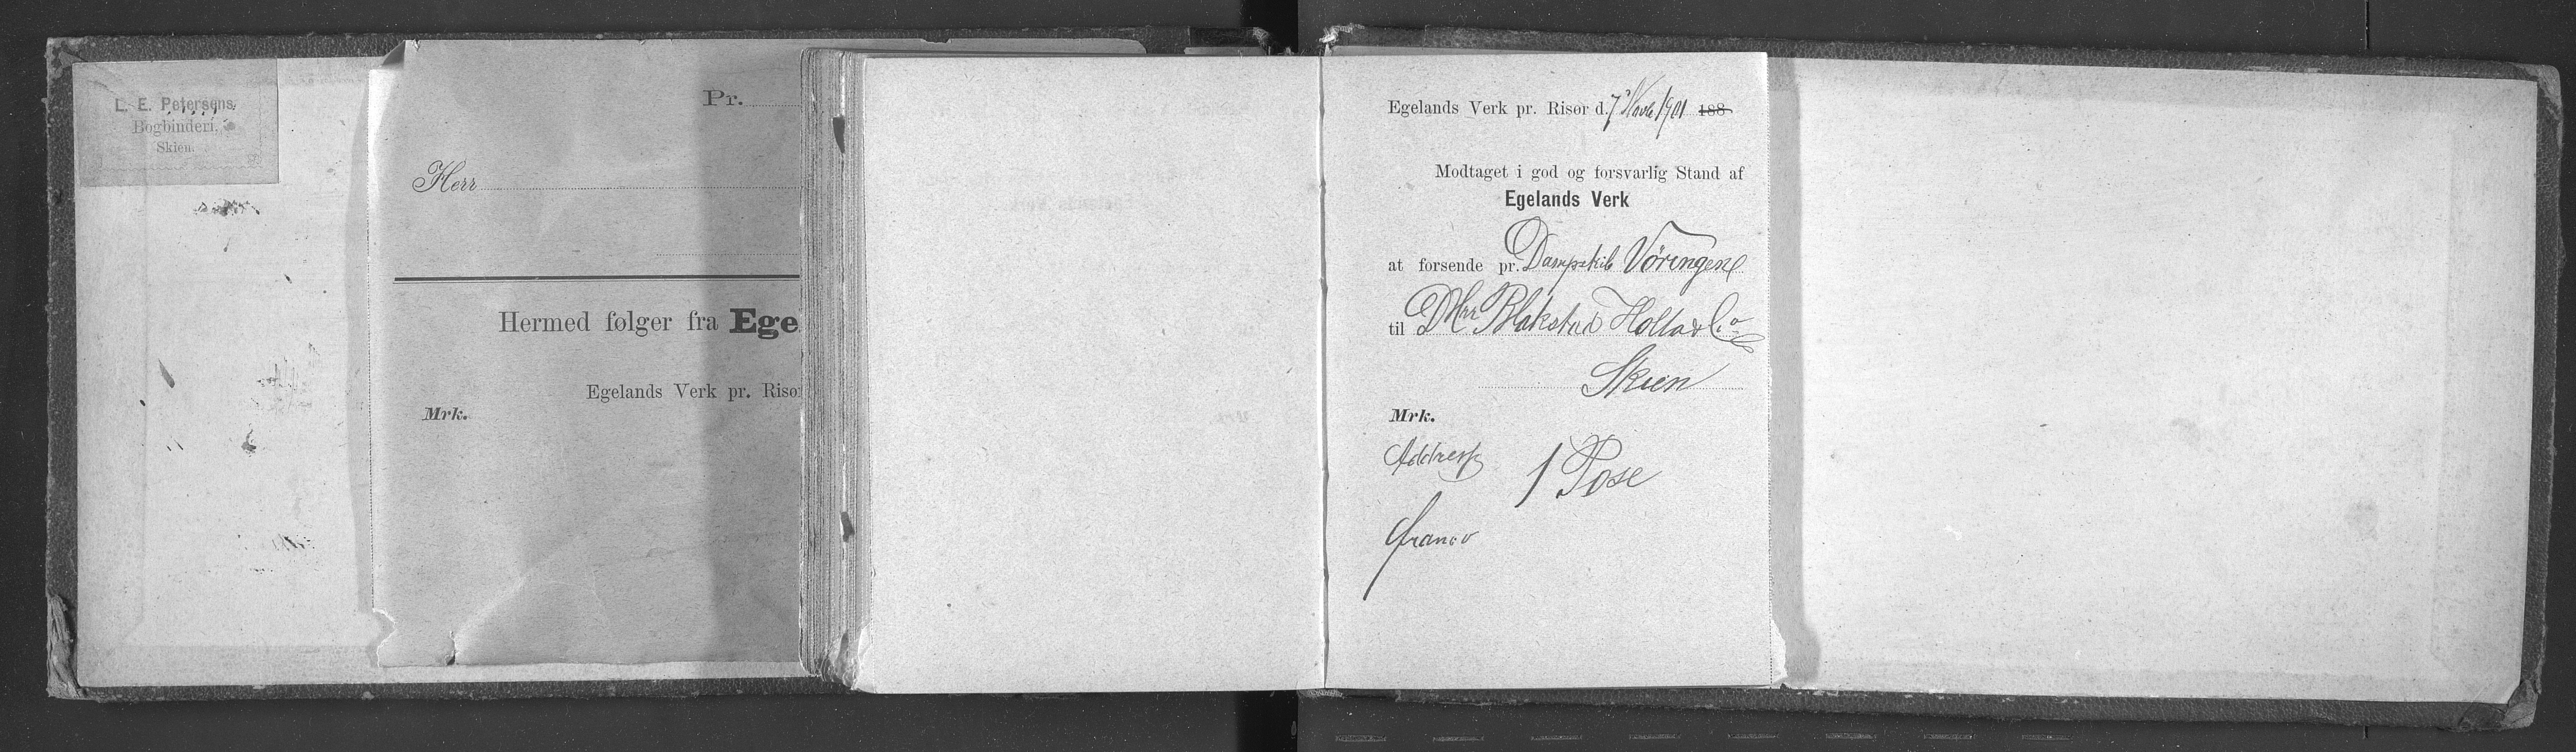 L. E. Petersens
Bogbinderi.
Skien.
Pr.
Herr
Hermed følger fra Ege
Egelands Verk pr. Risø
Mrk.
Egelands Verk pr. Risør d. 7 Novb 1901 188
Modtaget i god og forsvarlig Stand af
Egelands Verk
at forsende pr. Dampskib Vöringen
til DHrr Blakstad Holta & Co
Skien
Mrk.
Addresse
1 Pose
franco